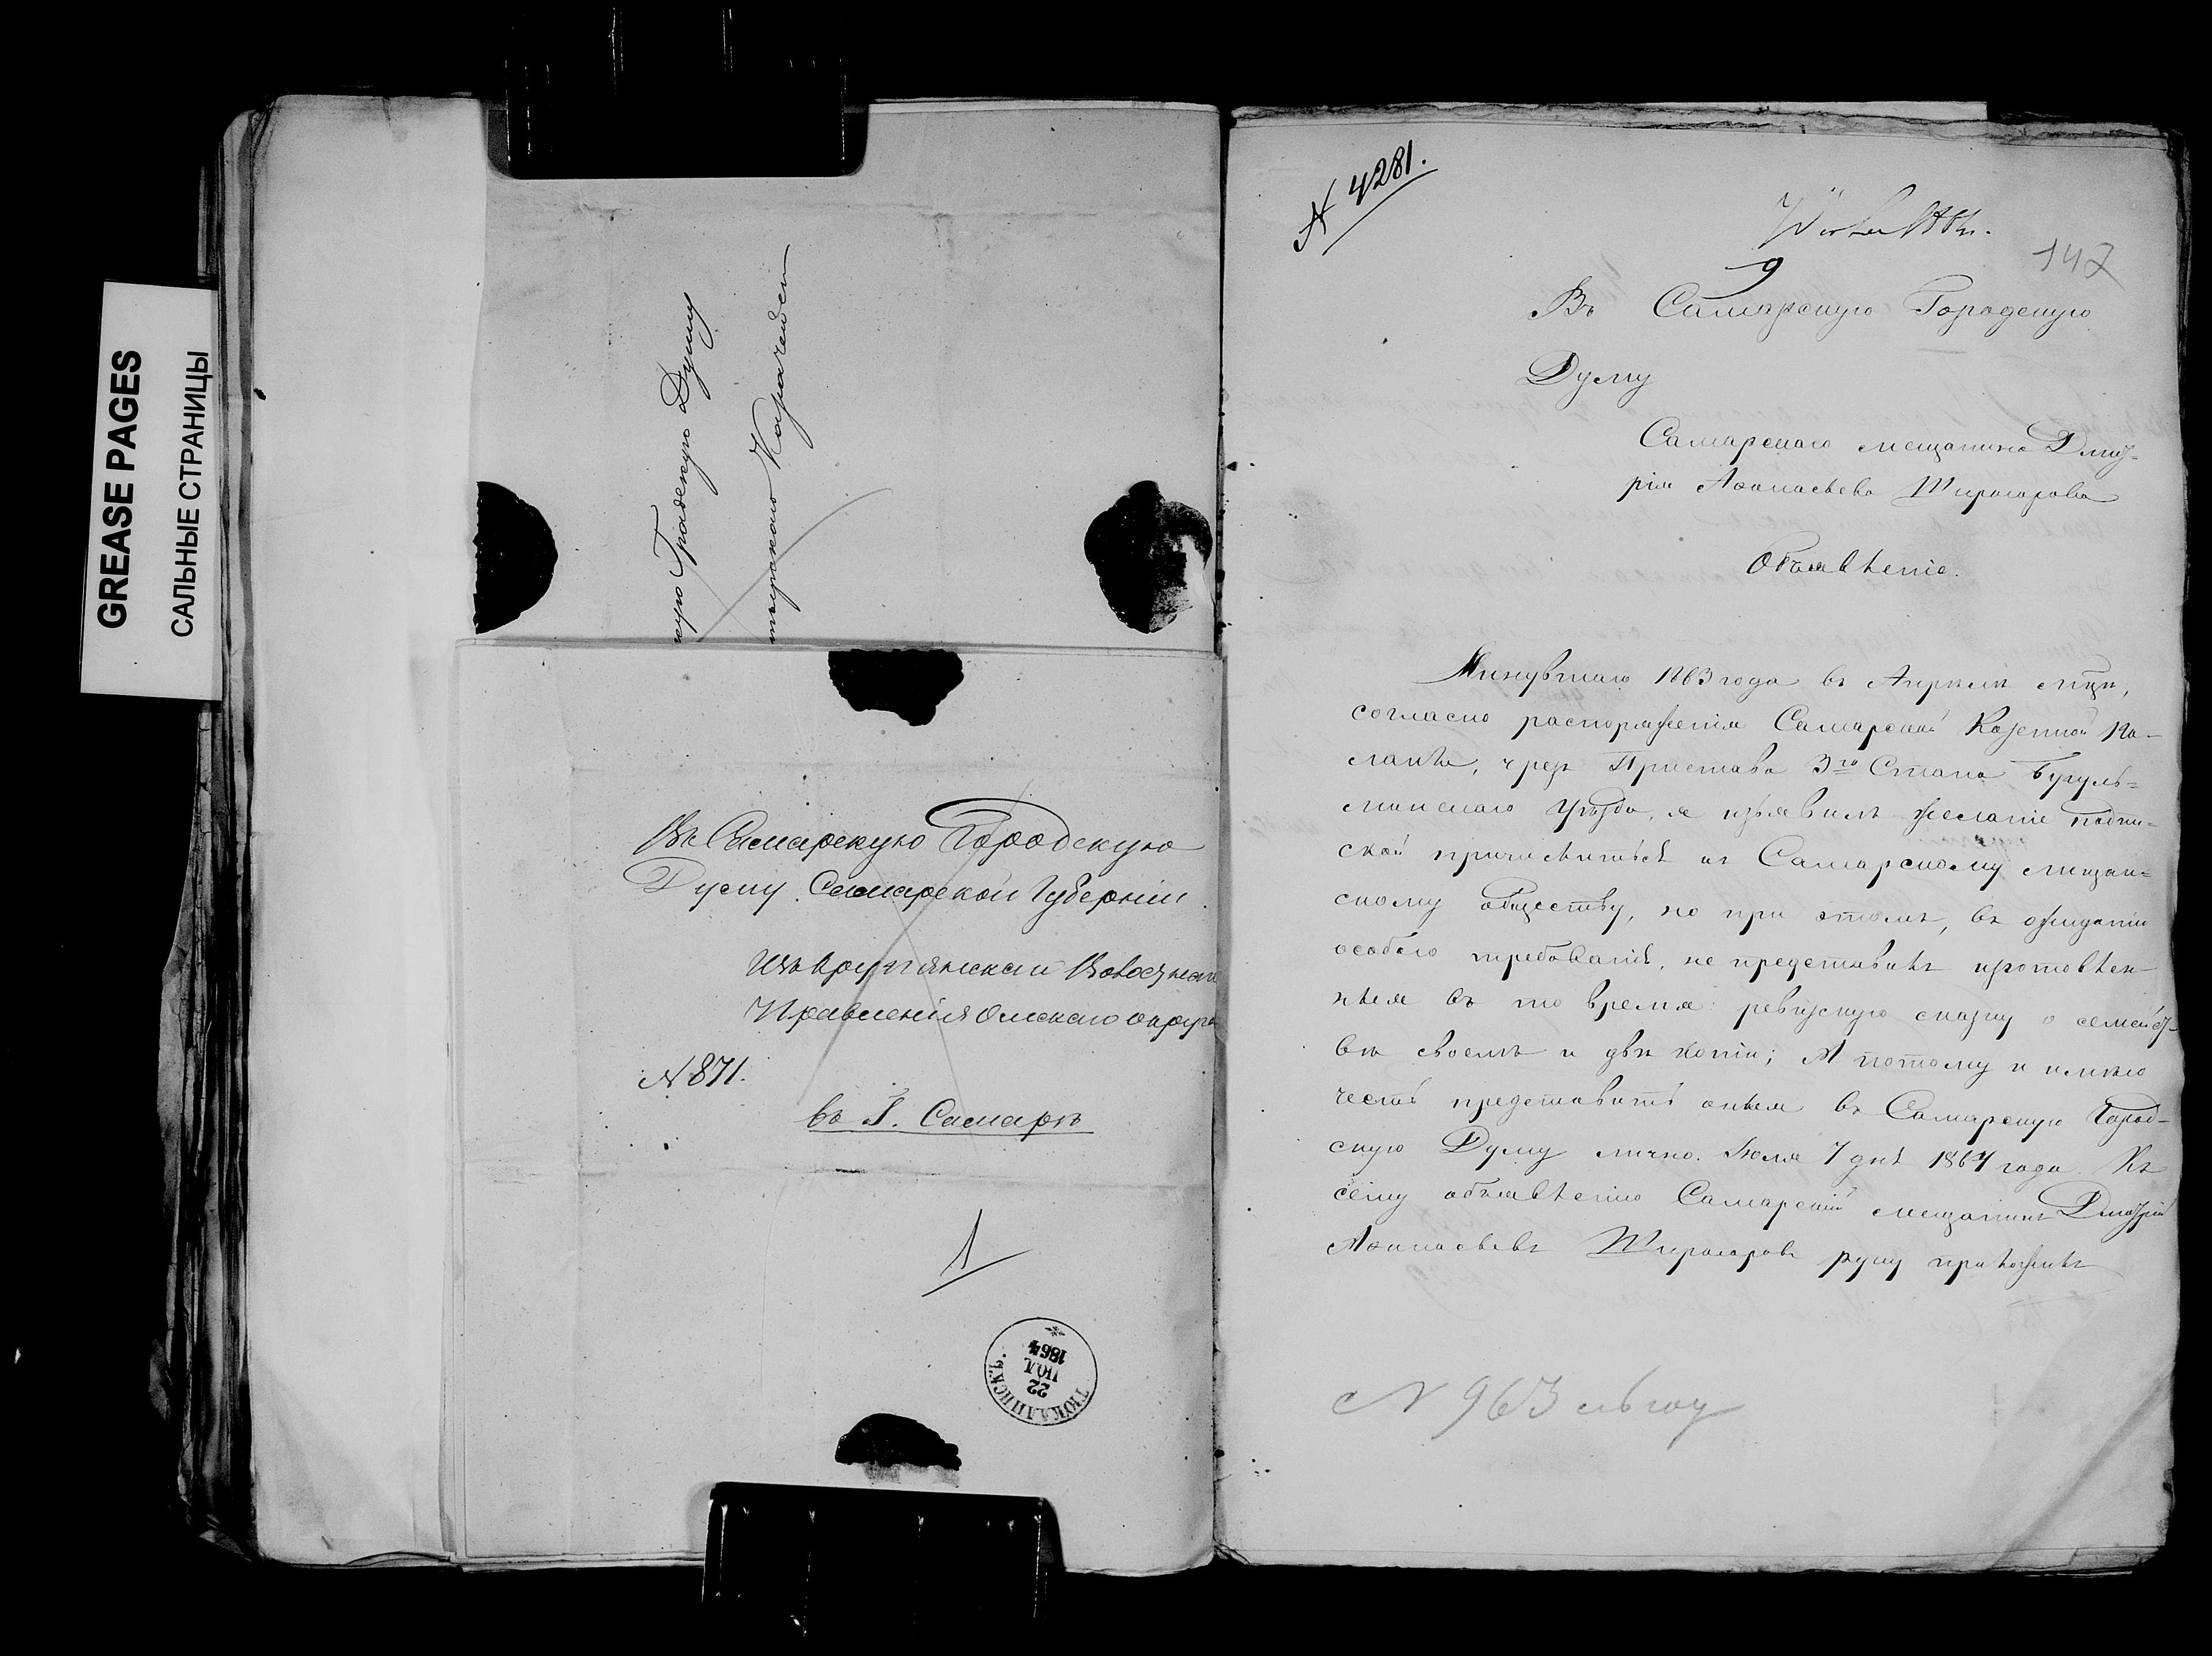 GREASE PAGES
САЛЬНЫЕ СТРАНИЦЫ
Градскую Думу
Въ Самарскую Городскую
Думу. Самарской Губерніи
Изъ Волостнаго
Правленія Омскаго округа
№ 871.
въ Г. Самарѣ
1
ТЮКАЛИНСКЪ.
22
ІЮЛ
1864
№ 4281.
147
9
Въ Самарскую Городскую
Думу
Самарскаго мещанина Дмит-
рія Аѳанасьева
Объявленіе.
Минувшаго 1863 года въ Апрѣлѣ мцѣ,
согласно распоряженія Самарской Казенной Па-
латы, чрезъ Пристава 3го Стана Бугуль-
минскаго уѣзда, я изъявилъ желаніе подпи-
ской причислиться къ Самарскому мещан-
скому обществу, но при этомъ, въ ожиданіи
особаго требованія, не представилъ изготовлен-
ныя въ то время: ревизскую сказку о семейст-
вѣ своемъ и двѣ копіи; А потому и имѣю
честь представить оныя въ Самарскую Город-
скую Думу лично. Іюля 7 дня 1864 года. Къ
сему объявленію Самарскій мещанинъ Дмитрій
Аѳанасьевъ руку приложилъ
№ 963